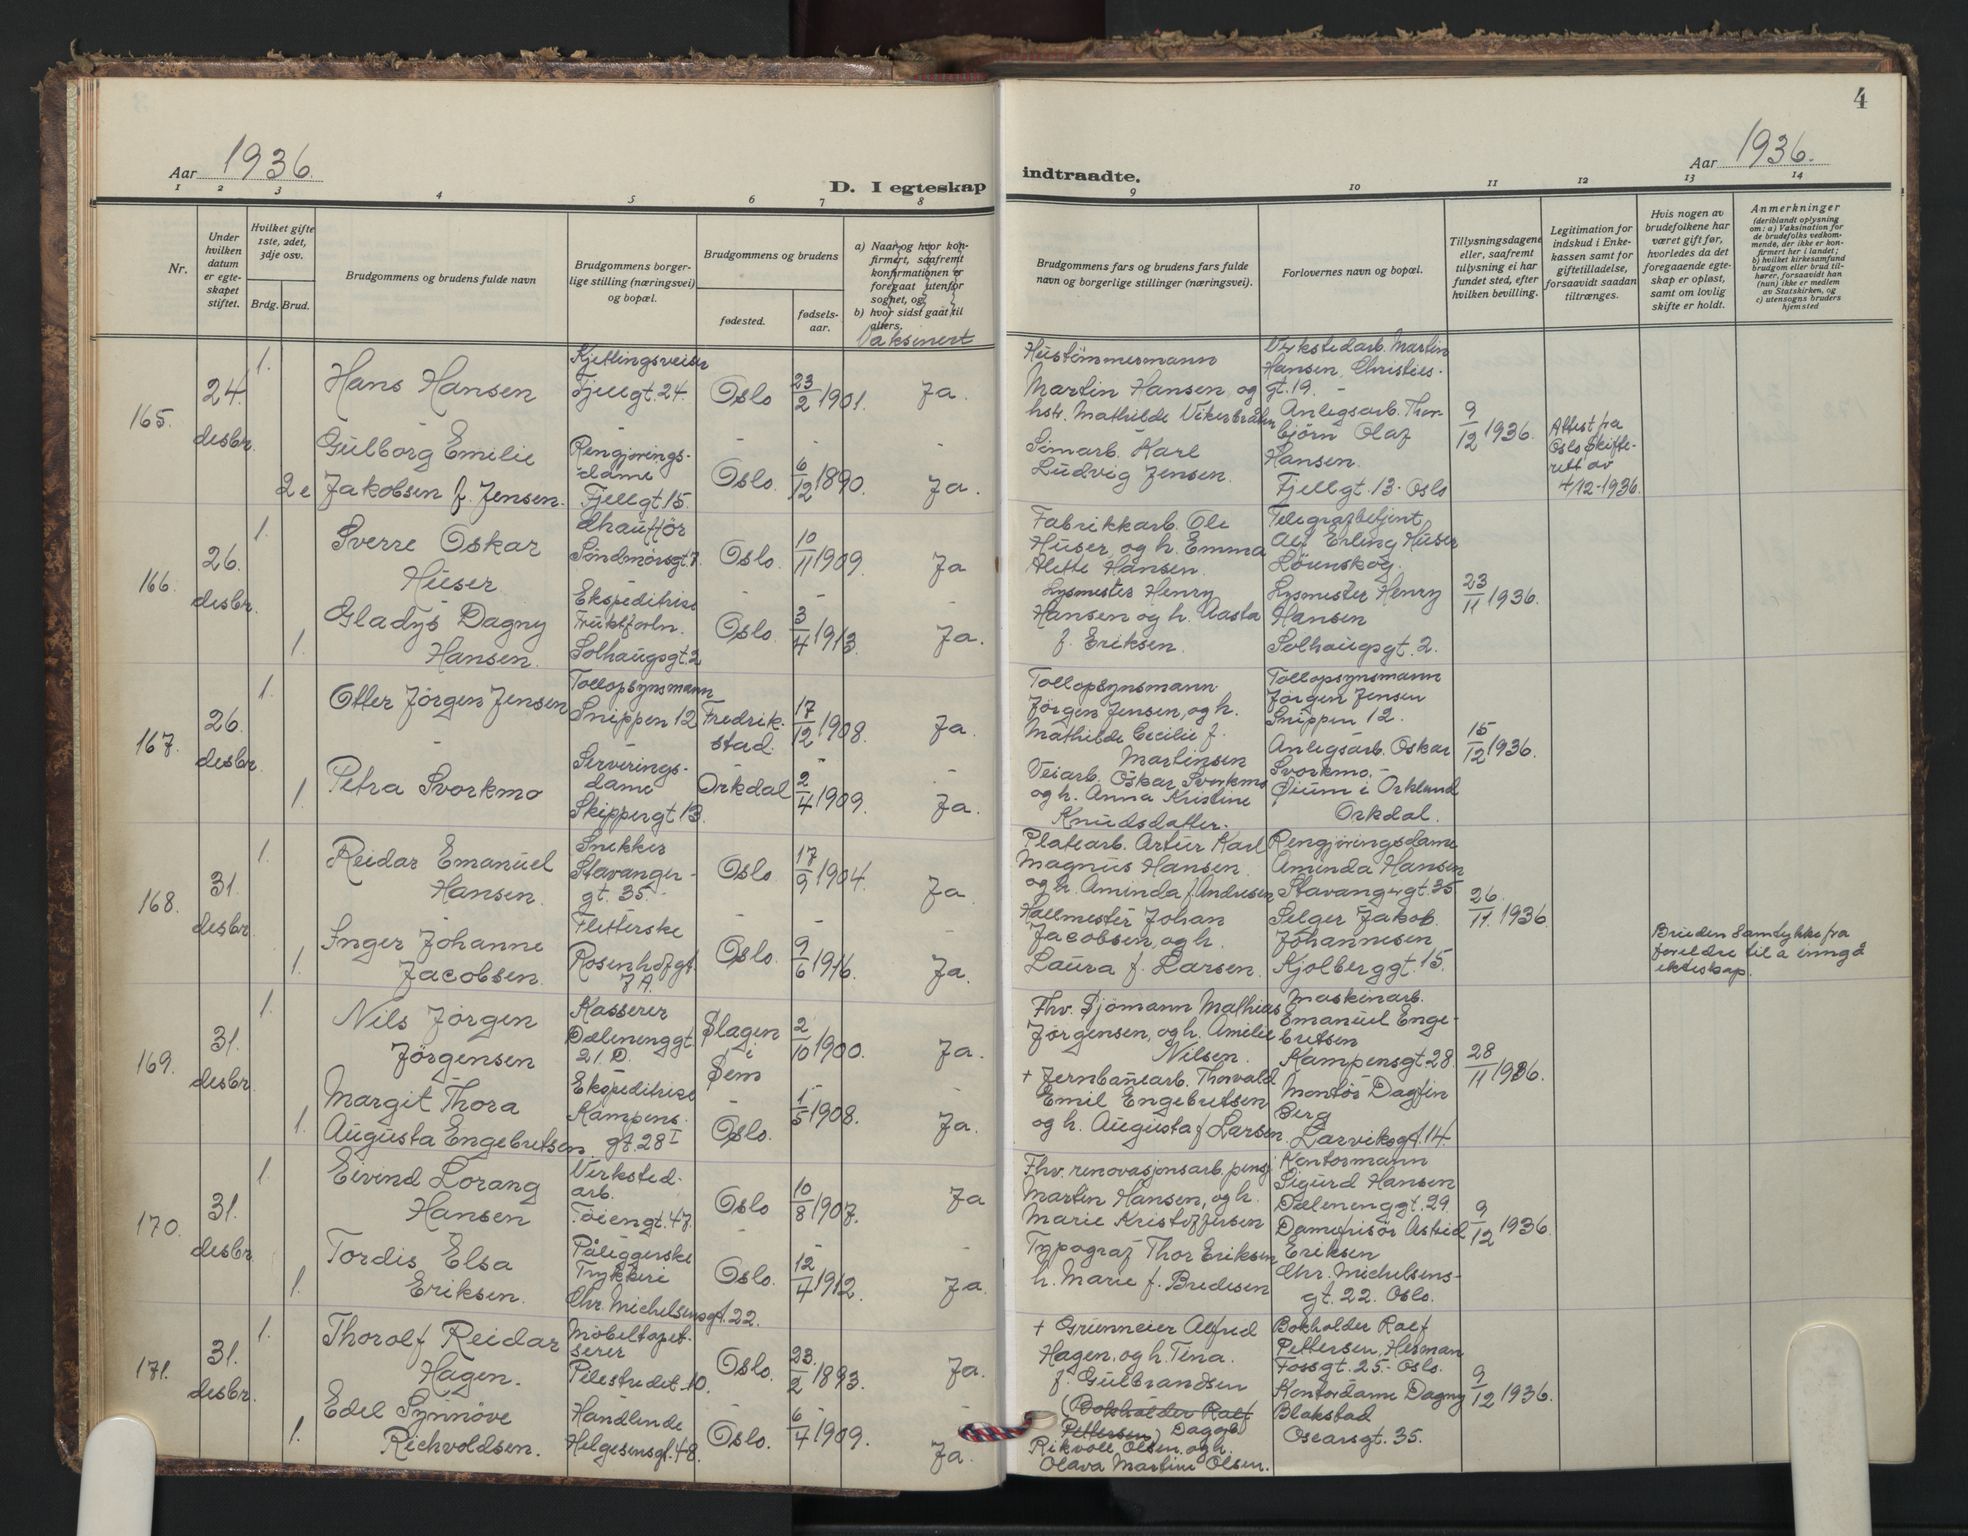 4
Aar 1936.
D. I egteskap
1 2 3 4 5 6 7 8
Nr.
Under hvilken datum er egteskapet stiftet.
Hvilket gifte 1ste, 2det, 3dje osv.
Brdg. Brud.
Brudgommens og brudens fulde navn
Brudgommens borgerlige stilling (næringsvei) og bopæl.
Brudgommens og brudens
fødested.
fødselsaar.
a) Naar og hvor konfirmert, saafremt konfirmationen er foregaat utenfor sognet, og
b) hvor sidst gaat til alters.
Vaksinert
165.
24. desbr.
1.
Hans Hansen
Kjetlingsveiser
Fjellgt. 24.
Oslo
23/2 1901.
Ja.
2e
Gulborg Emilie
Jakobsen f. Jensen.
Rengjørings-
dame
Fjellgt. 15.
Oslo.
6/12 1890.
Ja.
166.
26. desbr.
1.
Sverre Oskar
Huser
Chauffør
Søndmørsgt. 7
Oslo.
10/11 1909.
Ja
1.
Gladys Dagny
Hansen.
Ekspeditrise
Fruktforln.
Solhaugsgt. 2
Oslo.
3/4 1913.
Ja.
167.
26. desbr.
1.
Otter Jörgen Jensen
Tollopsynsmann
Snippen 12
Fredrik-
stad.
17/12 1908.
Ja.
1.
Petra Svorkmo
Serverings-
dame
Skippergt 13.
Orkdal
2/4 1909.
Ja.
168.
31. desbr.
1.
Reidar Emanuel
Hansen.
Snekker
Stavanger-
gt. 35.
Oslo.
17/9 1904.
Ja.
1.
Inger Johanne
Jacobsen.
Fletterske
Rosenhofgt.
7A.
Oslo.
9/6 1916.
Ja.
169.
31. desbr.
1.
Nils Jörgen
Jörgensen
Kasserer
Dælenenggt.
21. D.
Slagen
i
Sem
2/10 1900.
Ja.
1.
Margit Thora
Augusta Engebretsen
Ekspeditrise
Kampens-
gt. 28 I
Oslo.
1/5 1908.
Ja.
170.
31. desbr.
1.
Eivind Lorang
Hansen
Verksted-
arb.
Töiengt. 47.
Oslo
10/8 1907.
Ja
1.
Tordis Elsa
Eriksen.
Påliggerske
Trykkeri
Chr. Michelsensgt. 22.
Oslo.
12/4 1912.
Ja.
171.
31. desbr.
1.
Thorolf Reidar
Hagen.
Möbeltapet-
serer
Pilestredet. 10.
Oslo.
23/2 1893.
Ja.
1.
Edel Synnöve
Richvoldsen.
Handlende
Helgesensgt. 48.
Oslo.
6/4 1909.
Ja.
Aar 1936.
indtraadte.
9 10 11 12 13 14
Brudgommens fars og brudens fars fulde navn og borgerlige stillinger (næringsvei).
Forlovernes navn og bopæl.
Tillysningsdagene eller, saafremt tillysning ei har fundet sted, efter hvilken bevilling.
Legitimation for indskud i Enkekassen samt for giftetilladelse, forsaavidt saadan tiltrænges.
Hvis nogen av brudefolkene har været gift før, hvorledes da det foregaaende egteskap er opløst, samt om lovlig skifte er holdt.
Anmerkninger
(deriblandt oplysning om: a) Vaksination for de brudefolks vedkommende, der ikke er konfirmert her i landet; b) hvilket kirkesamfund brudgom eller brud tilhører, forsaavidt han (hun) ikke er medlem av Statskirken, og c) utensogns bruders hjemsted
Hustömmermann
Martin Hansen, og
hstr. Mathilde Vikerbråten
Verkstedarb. Martin
Hansen, Christies-
gt. 19.
9/12 1936.
Attest fra
Oslo Skifte-
rett av
4/12-1936.
Simarb. Karl
Ludvig Jensen.
Anlegsarb. Thor-
björn Olaf
Hansen.
Fjellgt. 13. Oslo
Fabrikkarb. Ole
Huser, og h. Emma
Alette Hansen.
Telegrafbetjent
Alf Erling Huser
Lörenskog.
23/11 1936.
Lysmester Henry
Hansen og h. Aasta
f. Eriksen.
Lysmester Henry
Hansen
Solhaugsgt. 2.
Tollopsynsmann
Jörgen Jensen, og h.
Mathilde Cecilie f.
Martinsen
Tollopsynsmann
Jörgen Jensen
Snippen 12.
15/12 1936.
Veiarb. Oskar Svorkmo
og h. Anna Kristine
Knudsdatter.
Anlegsarb. Oskar
Svorkmo.
i Orkland
Orkdal.
Platearb. Artur Karl
Magnus Hansen.
og h. Aminda f. Andresen
Rengjöringsdame
Aminda Hansen
Stavangergt. 35
26/11 1936
Hallmester Johan
Jacobsen, og h.
Laura f. Larsen.
Selger Jakob
Johannesen
Kjolberggt. 15.
Bruden samtykke fra
foreldre til å inngå
ekteskap.
Fhv. Sjömann Mathias
Jörgensen, og h. Amelie
Nilsen.
Maskinarb.
Emanuel Enge-
bretsen
Kampensgt. 28
28/11 1936.
+ Jernbanearb. Thorvald
Emil Engebretsen
og h. Augusta f Larsen.
Montör Dagfin
Berg
Larviksgt. 14.
Fhv. renovasjonsarb. pensj
Martin Hansen, og h.
Marie Kristoffersen
Kontormann
Sigurd Hansen
Dælenenggt. 29.
9/12 1936.
Typograf Thor Eriksen
h. Marie f. Bredesen
Damefrisör Astrid
Eriksen
Chr. Michelsens-
gt. 22. Oslo.
+ Alfred
Hagen, og h. Tina.
f. Gulbrandsen
Bokholder Ralf
Pettersen, Herman
Fossgt. 25. Oslo.
9/12 1936.
(Bokholder Ralf
Pettersen)
Rikvoll Olsen. og h.
Olava Martine Olsen.
Kontordame Dagny
Blakstad
Oscarsgt. 35.